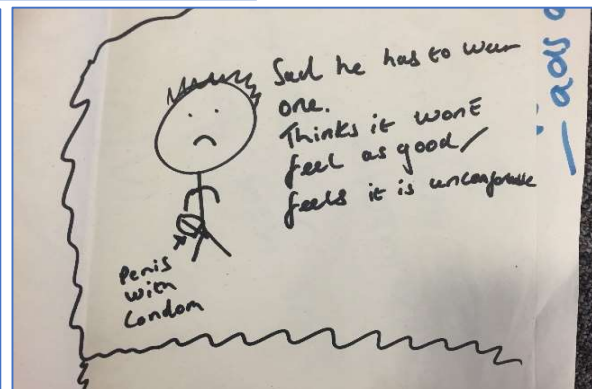 Sad he has to wear
one.
Thinks it wont
feel as good/
feels it is uncomfortable
Penis
with
Condom